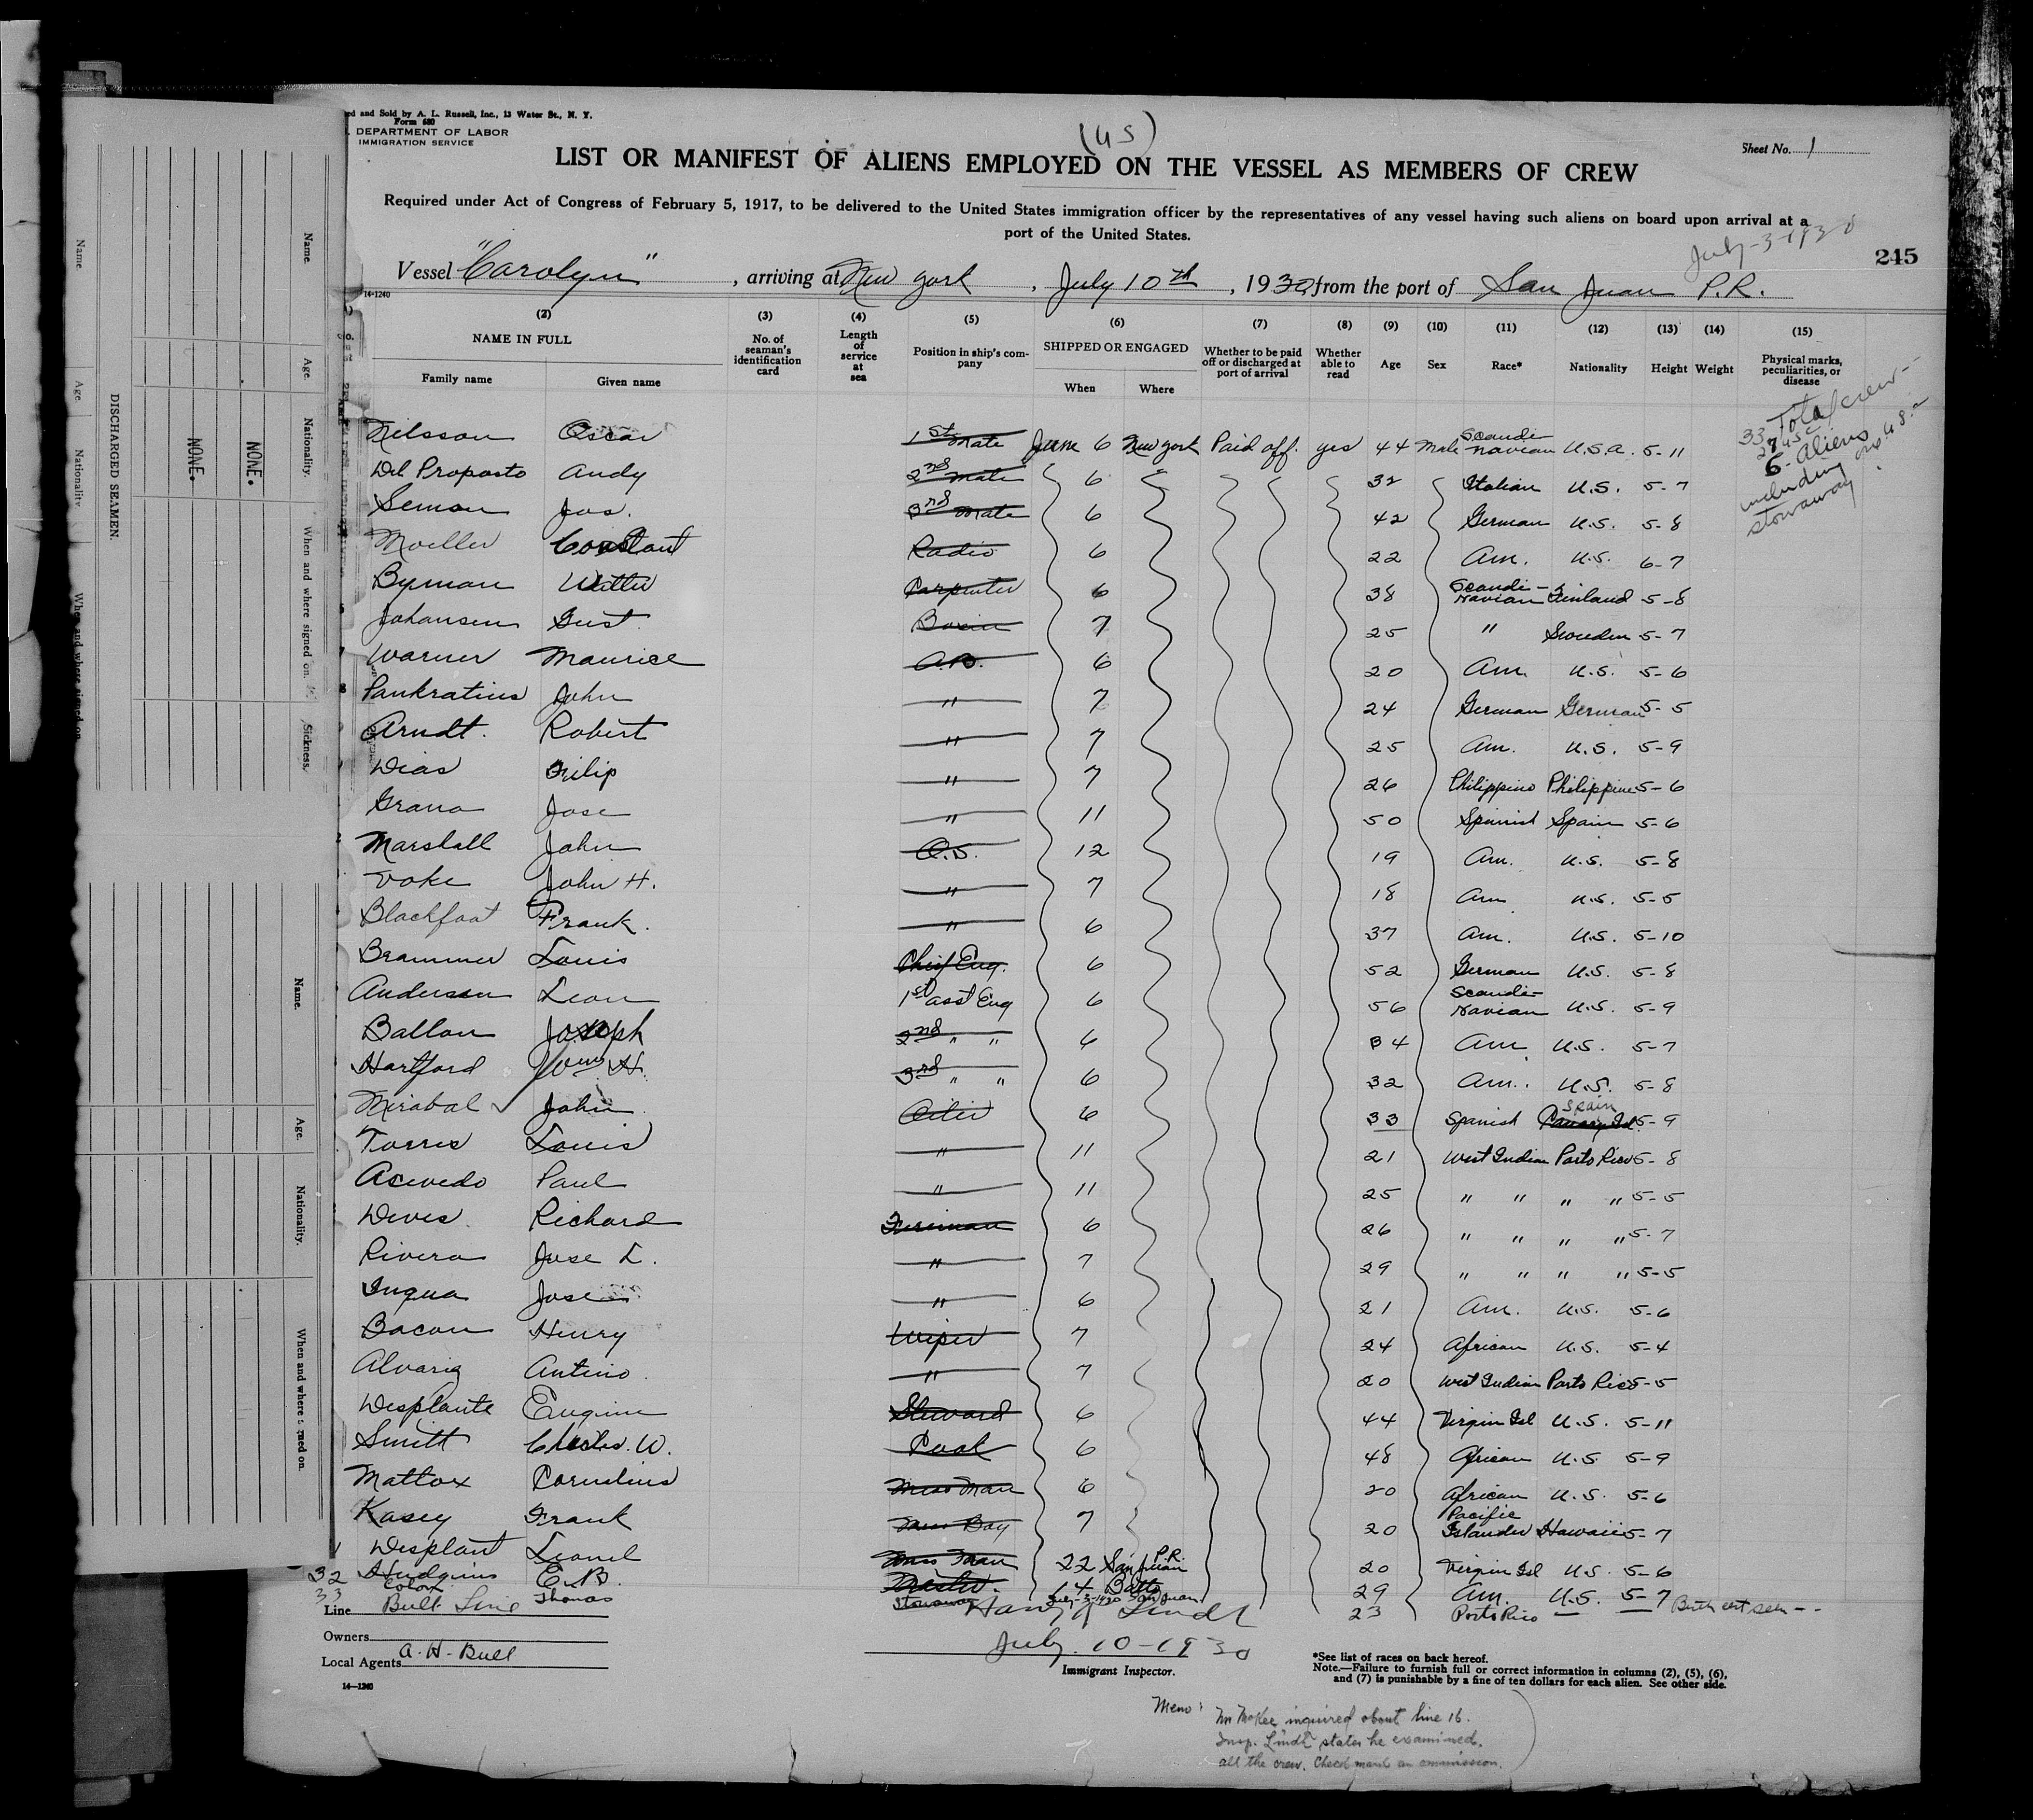 ed and Sold by A. L. Russell, Inc., 13 Water St., N. Y.
Form 680
. DEPARTMENT OF LABOR
IMMIGRATION SERVICE
(US)
Sheet No. 1
LIST OR MANIFEST OF ALIENS EMPLOYED ON THE VESSEL AS MEMBERS OF CREW
Required under Act of Congress of February 5, 1917, to be delivered to the United States immigration officer by the representatives of any vessel having such aliens on board upon arrival at a
port of the United States.
July-3-1930
245
Vessel "Carolyn", arriving at New York, July 10th, 1930, from the port of San Juan P.R.
14-1240
(2) (3) (4) (5) (6) (7) (8) (9) (10) (11) (12) (13) (14) (15)
NAME IN FULL No. of seaman's identification card Length of service at sea Position in ship's company SHIPPED OR ENGAGED Whether to be paid off or discharged at port of arrival Whether able to read Age Sex Race* Nationality Height Weight Physical marks, peculiarities, or disease
Family name Given name When Where
Total crew-
33
27 US
6-Aliens
including one U.S.
stowaway
Nilsson Oscar 1st Mate June 6 New York Paid off. yes 44 Male Scandinavian U.S.A. 5-11
Del Proposto Andy 2nd Mate 6 " 32 Italian U.S. 5-7
Semon Jos. 3rd Mate 6 42 German U.S. 5-8
Moeller Constant Radio 6 22 Am. U.S. 6-7
Byman Carpenter 6 38 Scandi-navian Finland 5-8
Johansen Gust. Bosin 7 25 " Sweden 5-7
Warner Maurice A.B. 6 20 Am. U.S. 5-6
Pankratius John " 7 24 German German 5-5
Arndt. Robert " 7 25 Am. U.S. 5-9
Dias Filip " 7 26 Philippino Philippines 5-6
Grana Jose " 11 50 Spanish Spain 5-6
Marshall John O.S. 12 19 Am. U.S. 5-8
Voke John H. " 7 18 Am. U.S. 5-5
Blackfoot Frank. " 6 37 Am. U.S. 5-10
Brammer Louis Chief Eng. 6 52 German U.S. 5-8
Anderson Leon 1st asst Eng 6 56 Scandi-navian U.S. 5-9
Ballon Joseph 2nd " " 6 34 Am U.S. 5-7
Hartford Wm H. 3rd " " 6 32 Am. U.S. 5-8
Mirabal John Oiler 6 33 Spanish Spain Canary Isl. 5-9
Torres Louis " 11 21 West Indian Porto Rico 5-8
Acevedo Paul " 11 25 " " " " 5-5
Richard Fireman 6 26 " " " " 5-7
Rivera Jose L. " 7 29 " " " " 5-5
Jose " 6 21 Am. U.S. 5-6
Bacon Henry Wiper 7 24 African U.S. 5-4
Alvarez Antino. " 7 20 West Indian Porto Rico 5-5
Desplante Eugene Steward 6 44 Virgin Isl U.S. 5-11
Smitt Charles. W. Cook 6 48 African U.S. 5-9
Mattox Cornelius Mess Man 6 20 African U.S. 5-6
Kasey Frank Mess Boy 7 20 Pacific Islander Hawaii 5-7
Desplant Lionel Mess Man 22 San Juan P.R. 20 Virgin Isl U.S. 5-6
32 Hudgins E.B. Master. 14 Balto 29 Am. U.S. 5-7
33 Colon Thomas Stowaway July-3-1930 San Juan 23 Porto Rico — — Birth cert seen --
Line Bull Line
Harry Lindt
Owners
July. 10-1930
Local Agents A. H. Bull
Immigrant Inspector.
14—1240
*See list of races on back hereof.
Note.—Failure to furnish full or correct information in columns (2), (5), (6),
and (7) is punishable by a fine of ten dollars for each alien. See other side.
Memo: Mr McKee inquired about line 16.
Insp. Lindt states he examined.
all the crew. Check mark an ommission.
DISCHARGED SEAMEN.
Name. Age. Nationality. When and where signed on. Sickness.
NONE. NONE.
Name. Age. Nationality. When and where signed on.
Name. Age. Nationality When and where signed on